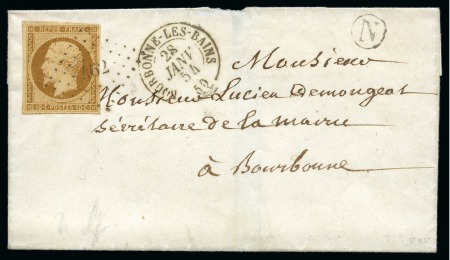 REPUB. FRANC.
10 C. POSTES 10 C.
BOURBONNE-LES-BAINS
28
JANV
54
N
Monsieur
Monsieur Lucien Demongeot
sécrétaire de la mairie
à Bourbonne